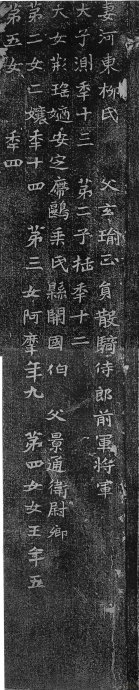 妻河東柳氏　父玄瑜正員散騎侍郎前軍將軍
大子測年十三　第二子楁年十二
大女荊瑤適安定席鷗乘氏縣開國伯　父景通衛尉卿
第二女仁孃年十四　第三女阿摩年九　第四女女王年五
第五女　年四